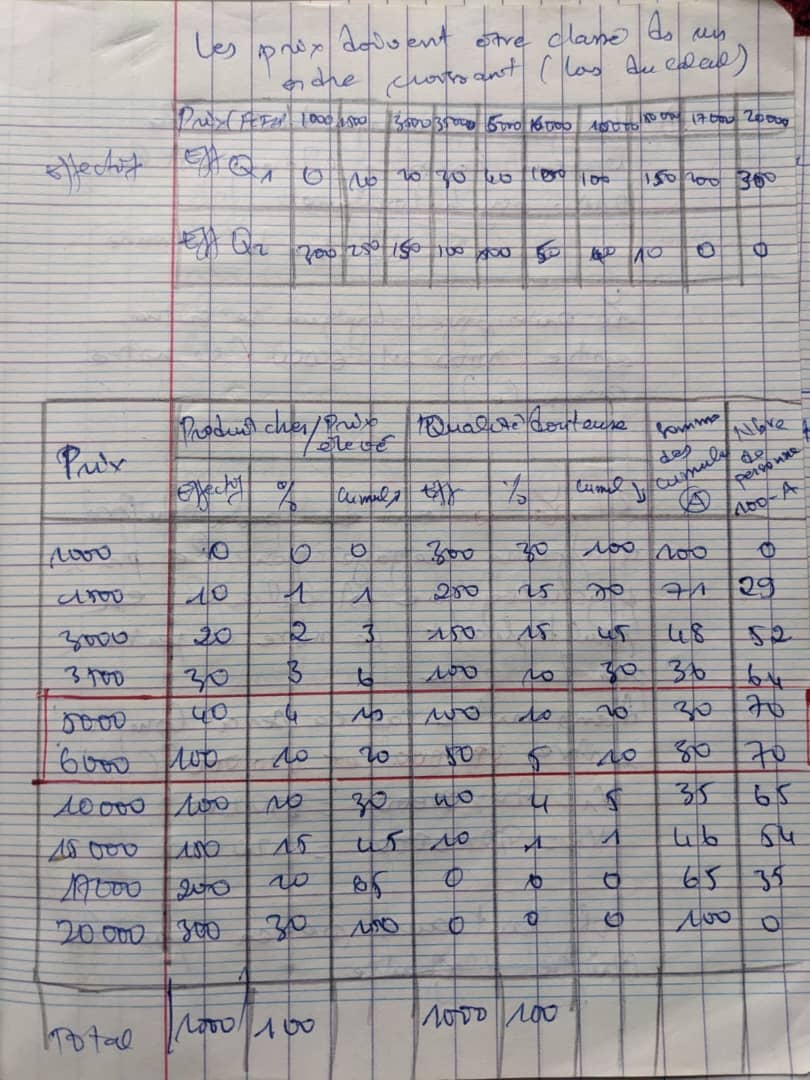 Les prix doivent être classé ds un
ordre croissant (las du calcul)
Prix (AFer 1000 1500 3000 35000 5000 16000 10000 15000 17000 20000
effectif Eff Q1 0 10 20 30 40 100 100 150 200 300
Eff Q2 300 250 150 100 100 50 40 10 0 0
Prix Produit cher/Prix élevé Qualité douteuse somme des cumulés (A) Nbre de personne 100-A
effectif % cumul↗ Eff % cumul↓
1000 0 0 0 300 30 100 100 0
1500 10 1 1 250 25 70 71 29
3000 20 2 3 150 15 45 48 52
3500 30 3 6 100 10 30 36 64
5000 40 4 10 100 10 20 30 70
6000 100 10 20 50 5 10 30 70
10000 100 10 30 40 4 5 35 65
15000 150 15 45 10 1 1 46 54
17000 200 20 65 0 0 0 65 35
20000 300 30 100 0 0 0 100 0
Total 1000 100 1000 100